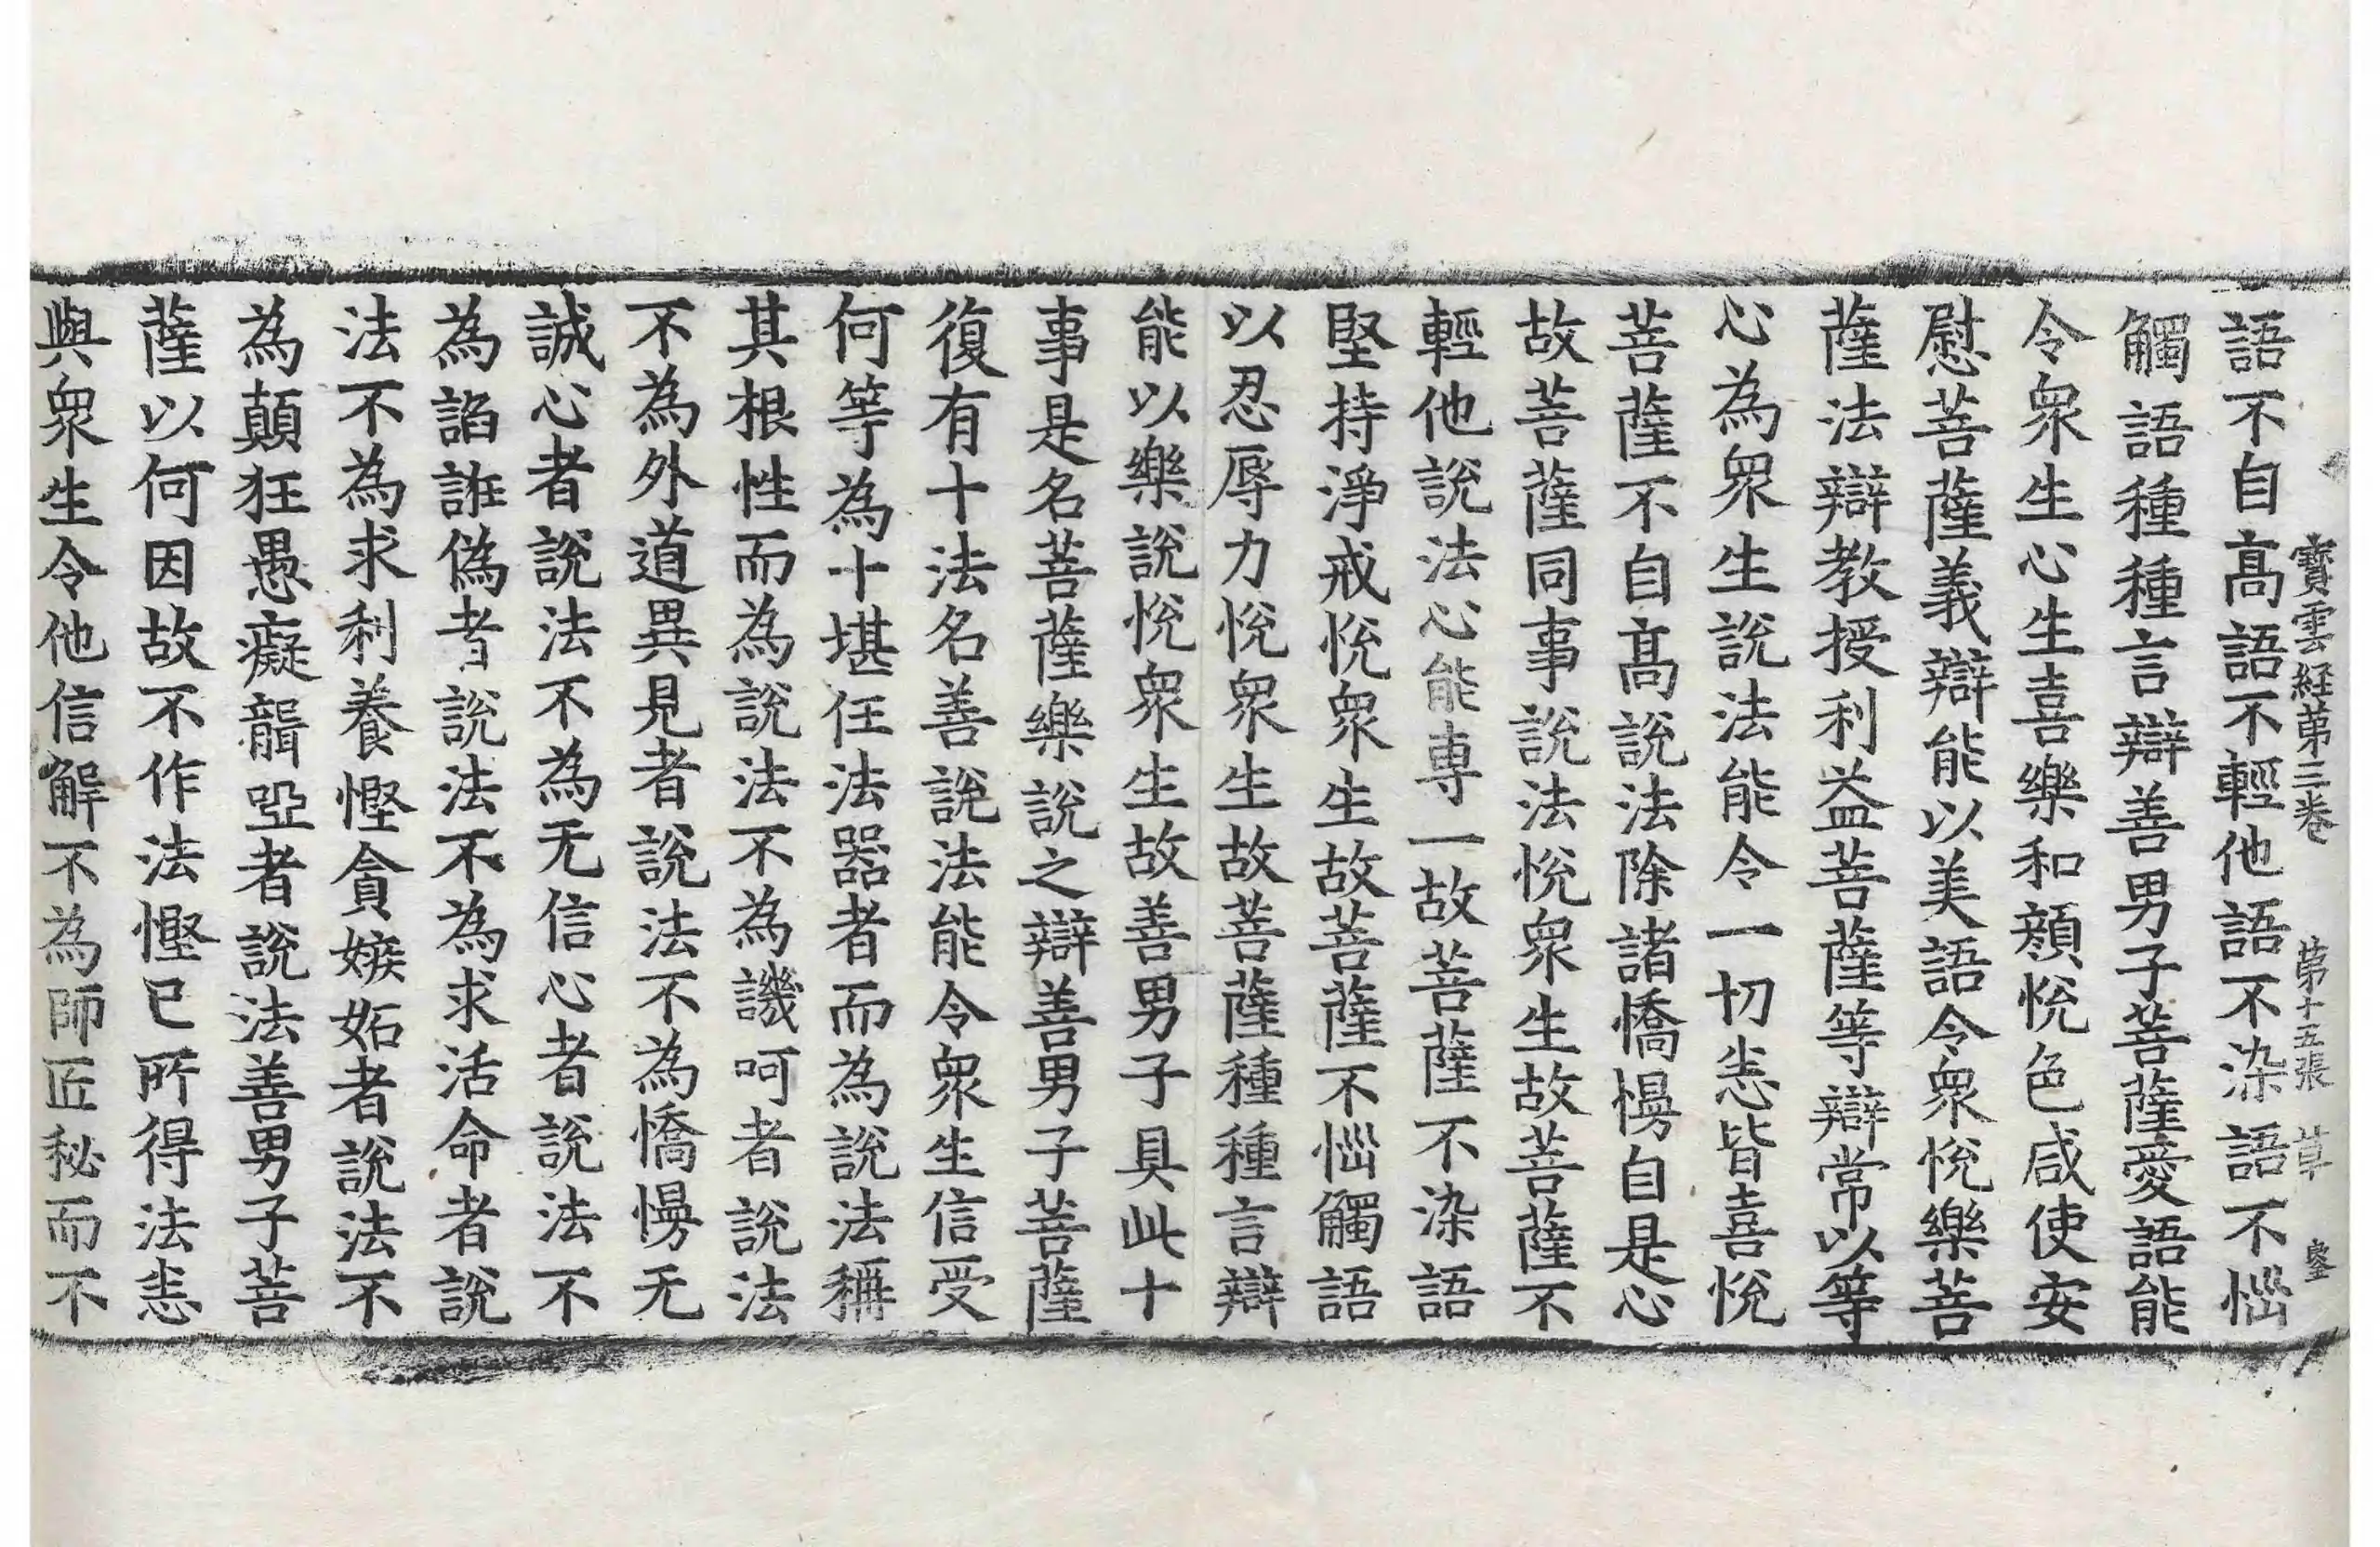 寶雲経苐三巻 苐十五張 草
語不自髙語不輕他語不染語不惱
觸語種種言辯善男子菩薩愛語能
令衆生心生喜樂和顔恱色咸使安
慰菩薩義辯能以美語令衆恱樂菩
薩法辯教授利益菩薩等辯常以等
心為衆生說法能令一切恙皆喜恱
菩薩不自髙說法除諸憍慢自是心
故菩薩同事說法恱衆生故菩薩不
輕他說法心能專一故菩薩不染語
堅持淨戒恱衆生故菩薩不惱觸語
以忍辱力恱衆生故菩薩種種言辯
能以樂說恱衆生故善男子具此十
事是名菩薩樂說之辯善男子菩薩
復有十法名善說法能令衆生信受
何等為十堪任法器者而為說法稱
其根性而為說法不為譏呵者說法
不為外道異見者說法不為憍慢无
誠心者說法不為无信心者說法不
為諂誑偽者說法不為求活命者說
法不為求利養慳貪嫉妬者說法不
為顛狂愚癡聾啞者說法善男子菩
薩以何因故不作法慳已所得法悉
與衆生令他信解不為師匠秘而不